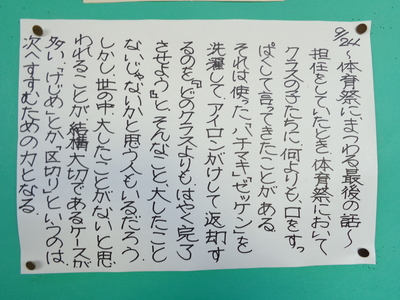 9/24 〜体育祭にまつわる最後の話〜
担任をしていたとき、体育祭において
クラスの子たちに、何よりも、口をすっ
ぱくして言ってきたことがある。
それは使った、「ハチマキ」「ゼッケン」を
洗濯して、アイロンがけして返却す
るのを、『どのクラスよりもはやく完了
させよう』と。そんなこと、大したこと
ないじゃないかと思う人もいるだろう。
しかし、世の中、大したことがないと思
われることが、結構大切であるケースが
多い。「けじめ」とか、「区切り」というのは、
次へすすむための力となる。